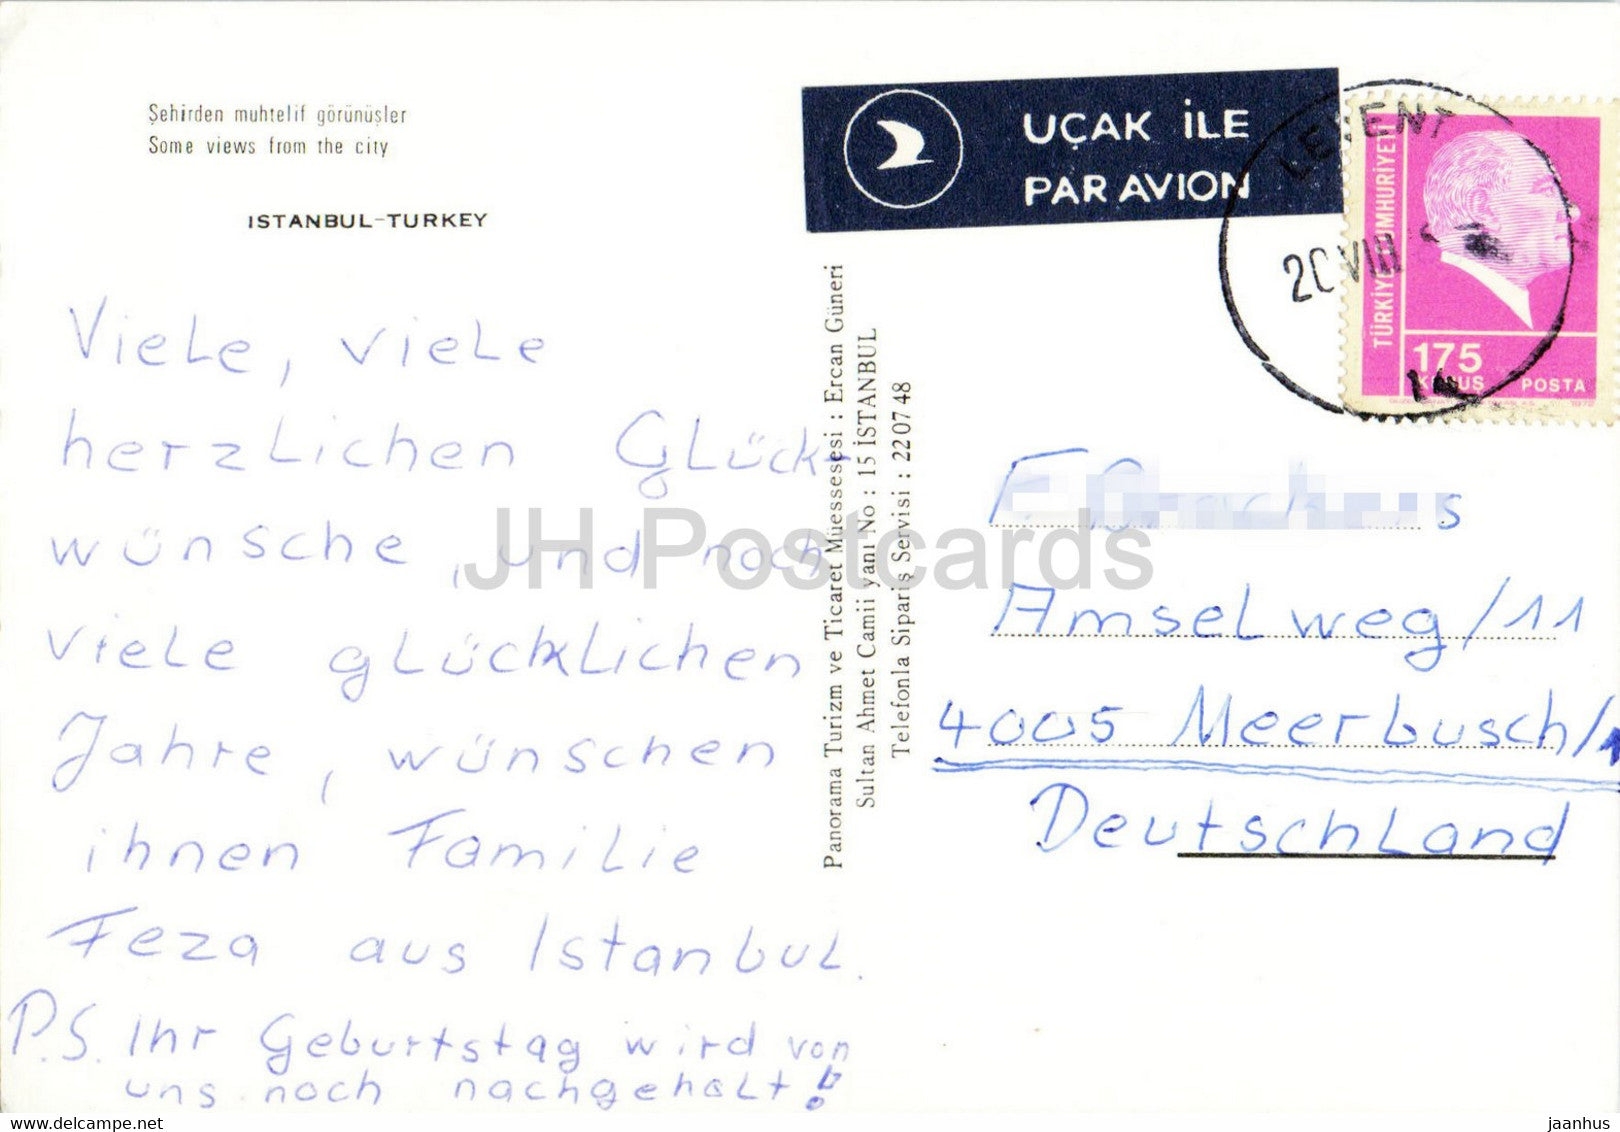 Şehirden muhtelif görünüşler
Some views from the city
ISTANBUL-TURKEY
Viele, viele
herzlichen Glück-
wünsche, und noch
viele glücklichen
Jahre, wünschen
ihnen Familie
Feza aus Istanbul.
P.S. Ihr Geburtstag wird von
uns noch nachgeholt!
Panorama Turizm ve Ticaret Müessesesi : Ercan Güneri
Sultan Ahmet Camii yanı No : 15 İSTANBUL
Telefonla Sipariş Servisi : 22 07 48
UÇAK İLE
PAR AVION
LEVENT
20 VIII
TÜRKİYE CUMHURİYETİ
175
KURUŞ POSTA
F.
Amselweg/11
4005 Meerbusch/1
Deutschland
JH Postcards
jaanhus
delcampe.net